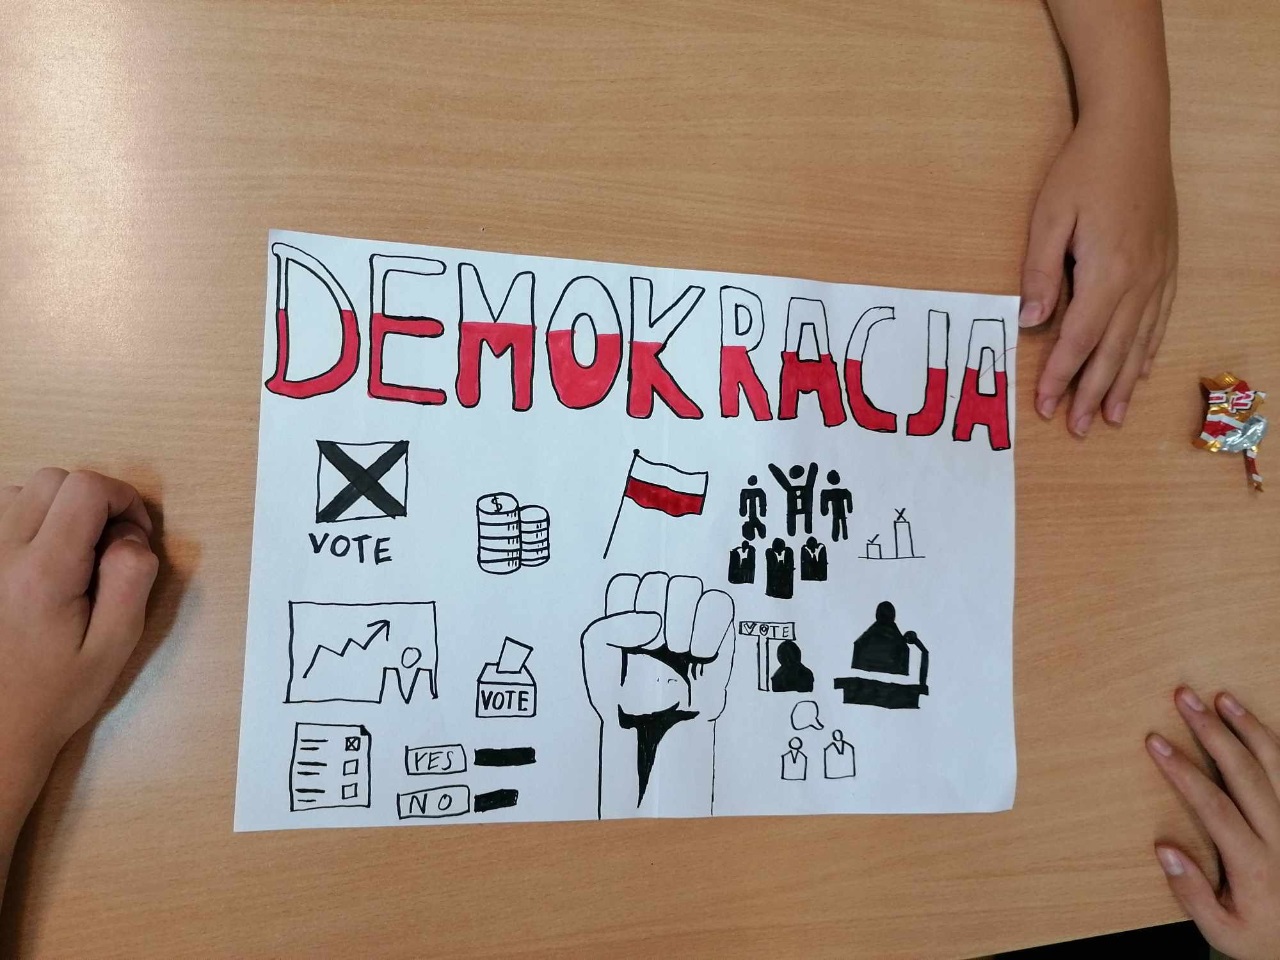 DEMOKRACJA
VOTE
$
VOTE
VOTE
YES
NO